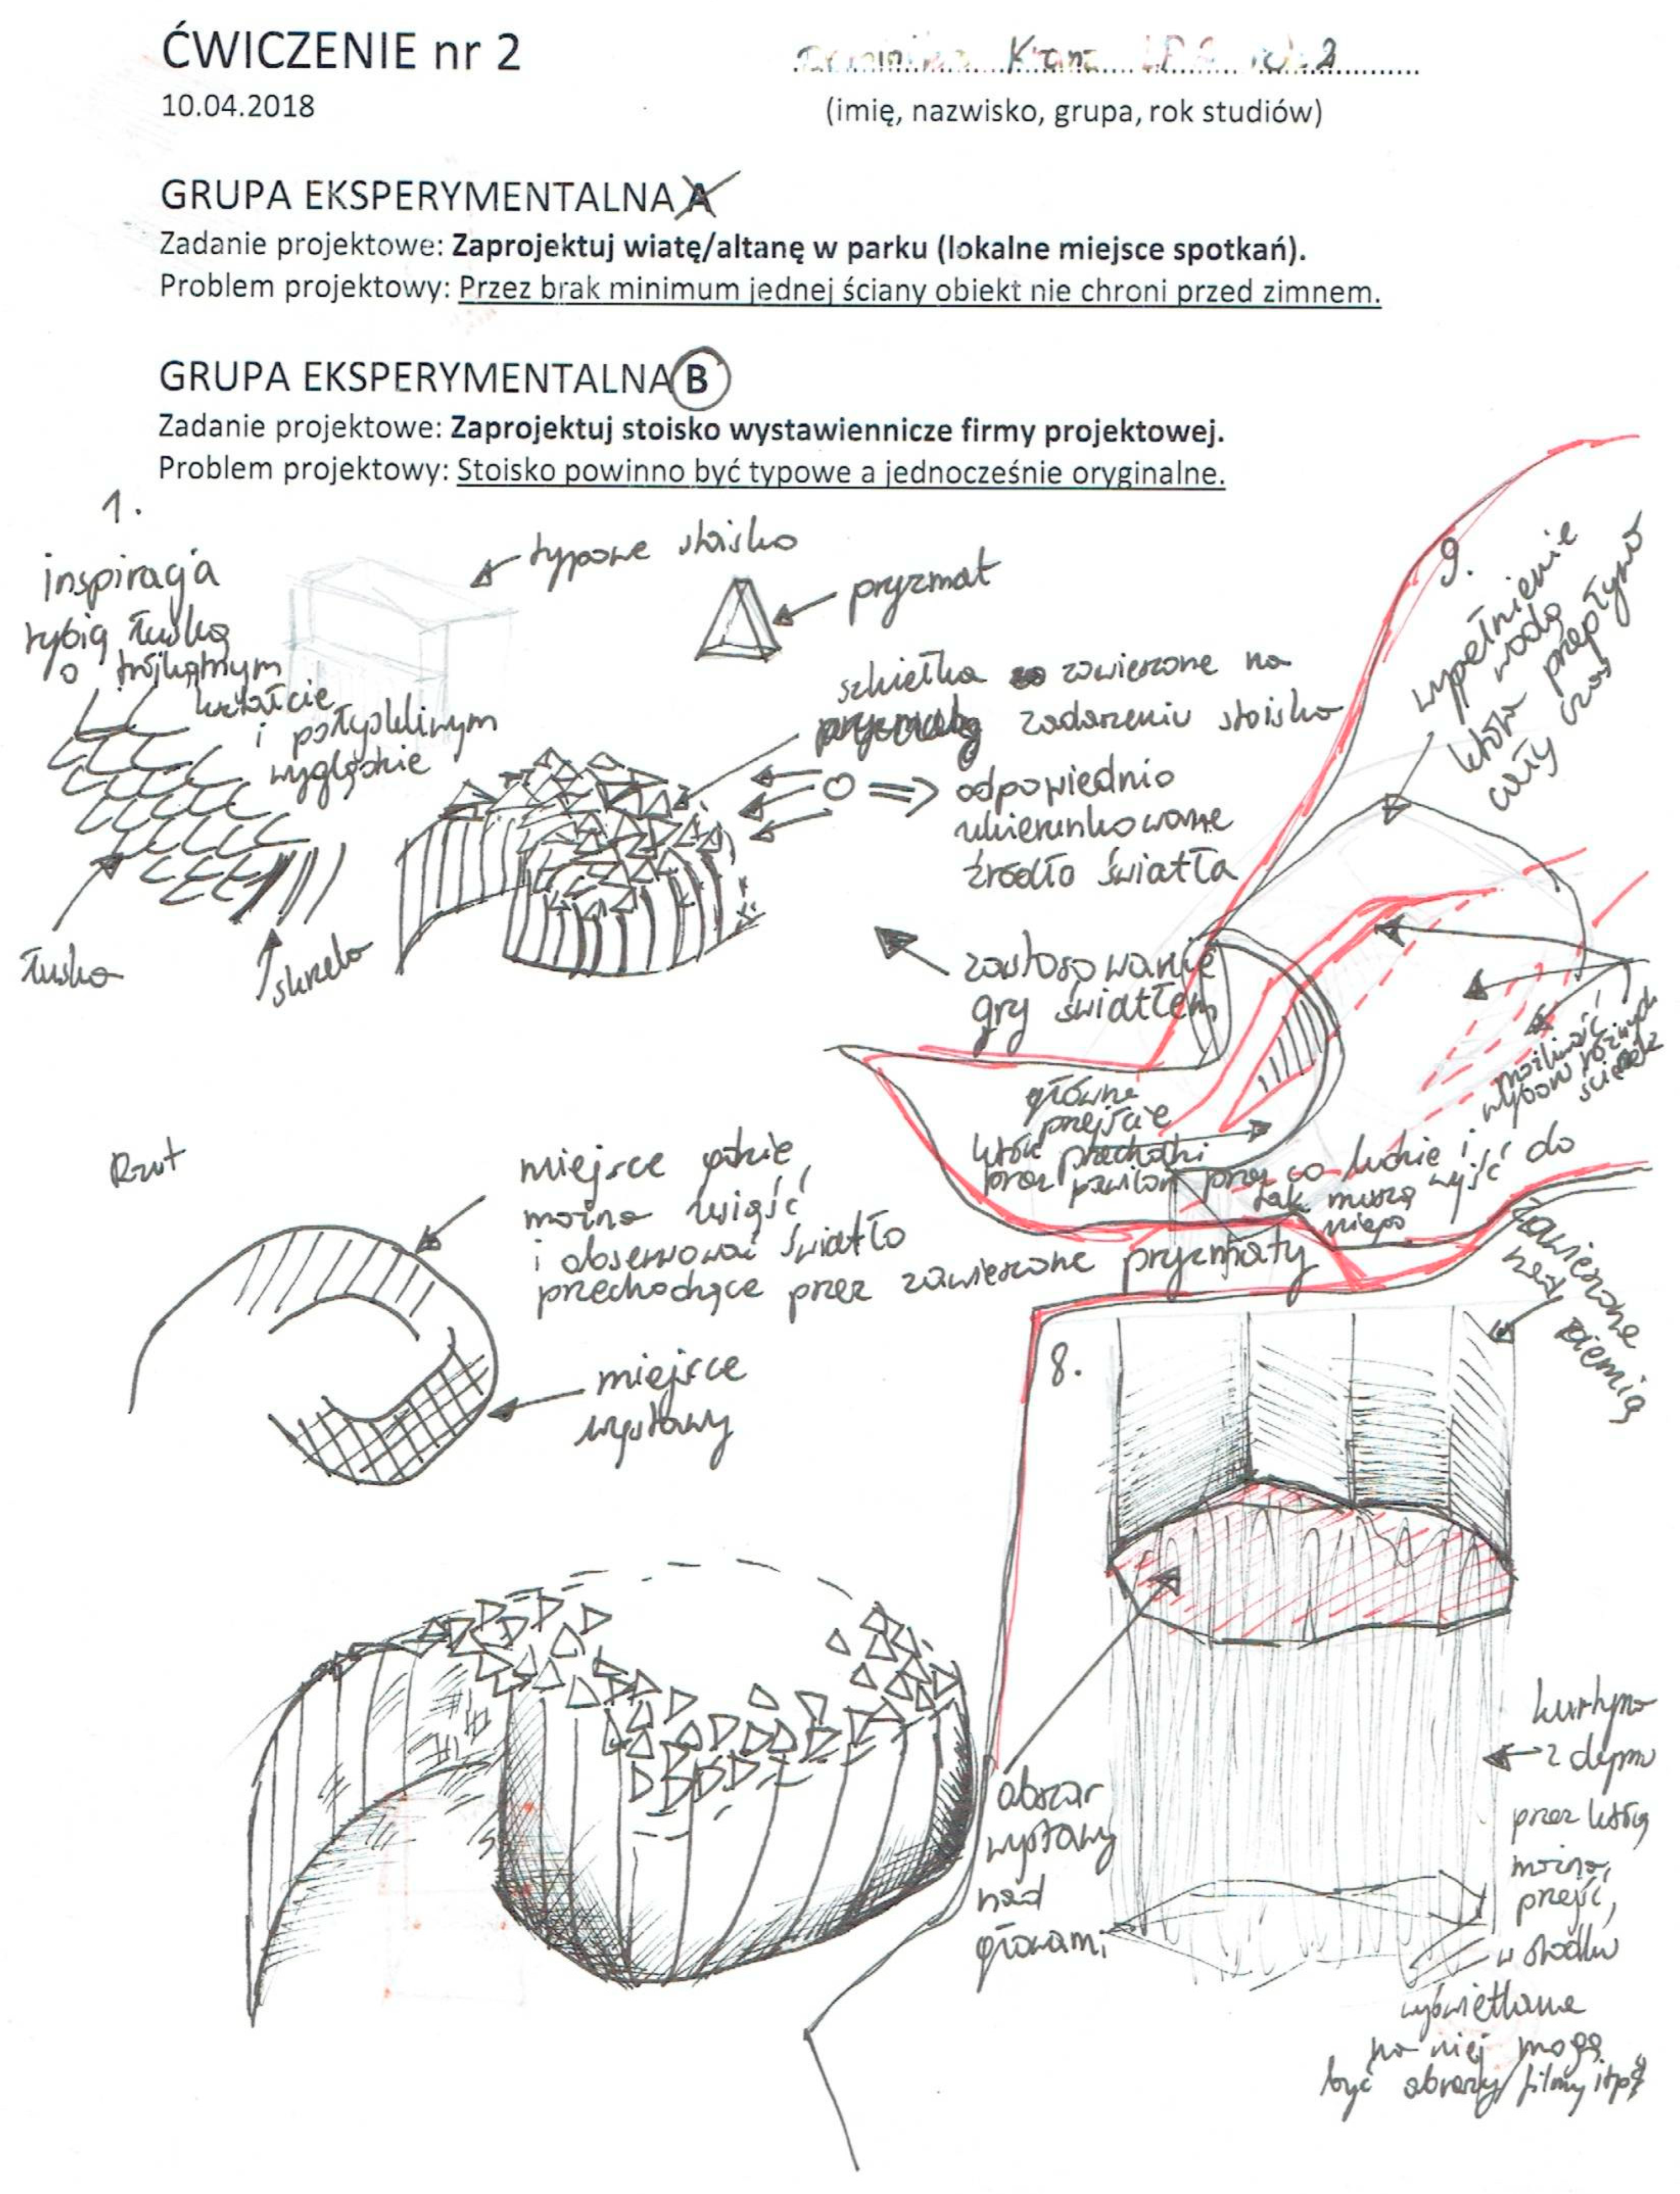 ĆWICZENIE nr 2
10.04.2018
(imię, nazwisko, grupa, rok studiów)
GRUPA EKSPERYMENTALNA A
Zadanie projektowe: Zaprojektuj wiatę/altanę w parku (lokalne miejsce spotkań).
Problem projektowy: Przez brak minimum jednej ściany obiekt nie chroni przed zimnem.
GRUPA EKSPERYMENTALNA B
Zadanie projektowe: Zaprojektuj stoisko wystawiennicze firmy projektowej.
Problem projektowy: Stoisko powinno być typowe a jednocześnie oryginalne.
1.
inspiracja
rybią łuską
o trójkątnym
kształcie
i połyskliwym
wyglądzie
łuska
skrzela
typowe stoisko
pryzmat
szkiełka zawieszone na
zadaszeniu stoiska
odpowiednio
ukierunkowane
źródło światła
zastosowanie
gry światłem
9.
wypełnienie
wodą
która przepływa
cały czas
możliwość
wyboru różnych
ścieżek
główne
przejście
które przechodzi
przez pawilon przez co ludzie i
tak muszą wyjść do
niego
Rzut
miejsce gdzie
można usiąść
i obserwować światło
przechodzące przez zawieszone pryzmaty
miejsce
wystawy
8.
zawieszone
nad
ziemią
obszar
wystawy
nad
głowami
kurtyna
z dymu
przez którą
można
przejść,
w środku
wyświetlane
na niej mogą
być obrazy/filmy itp